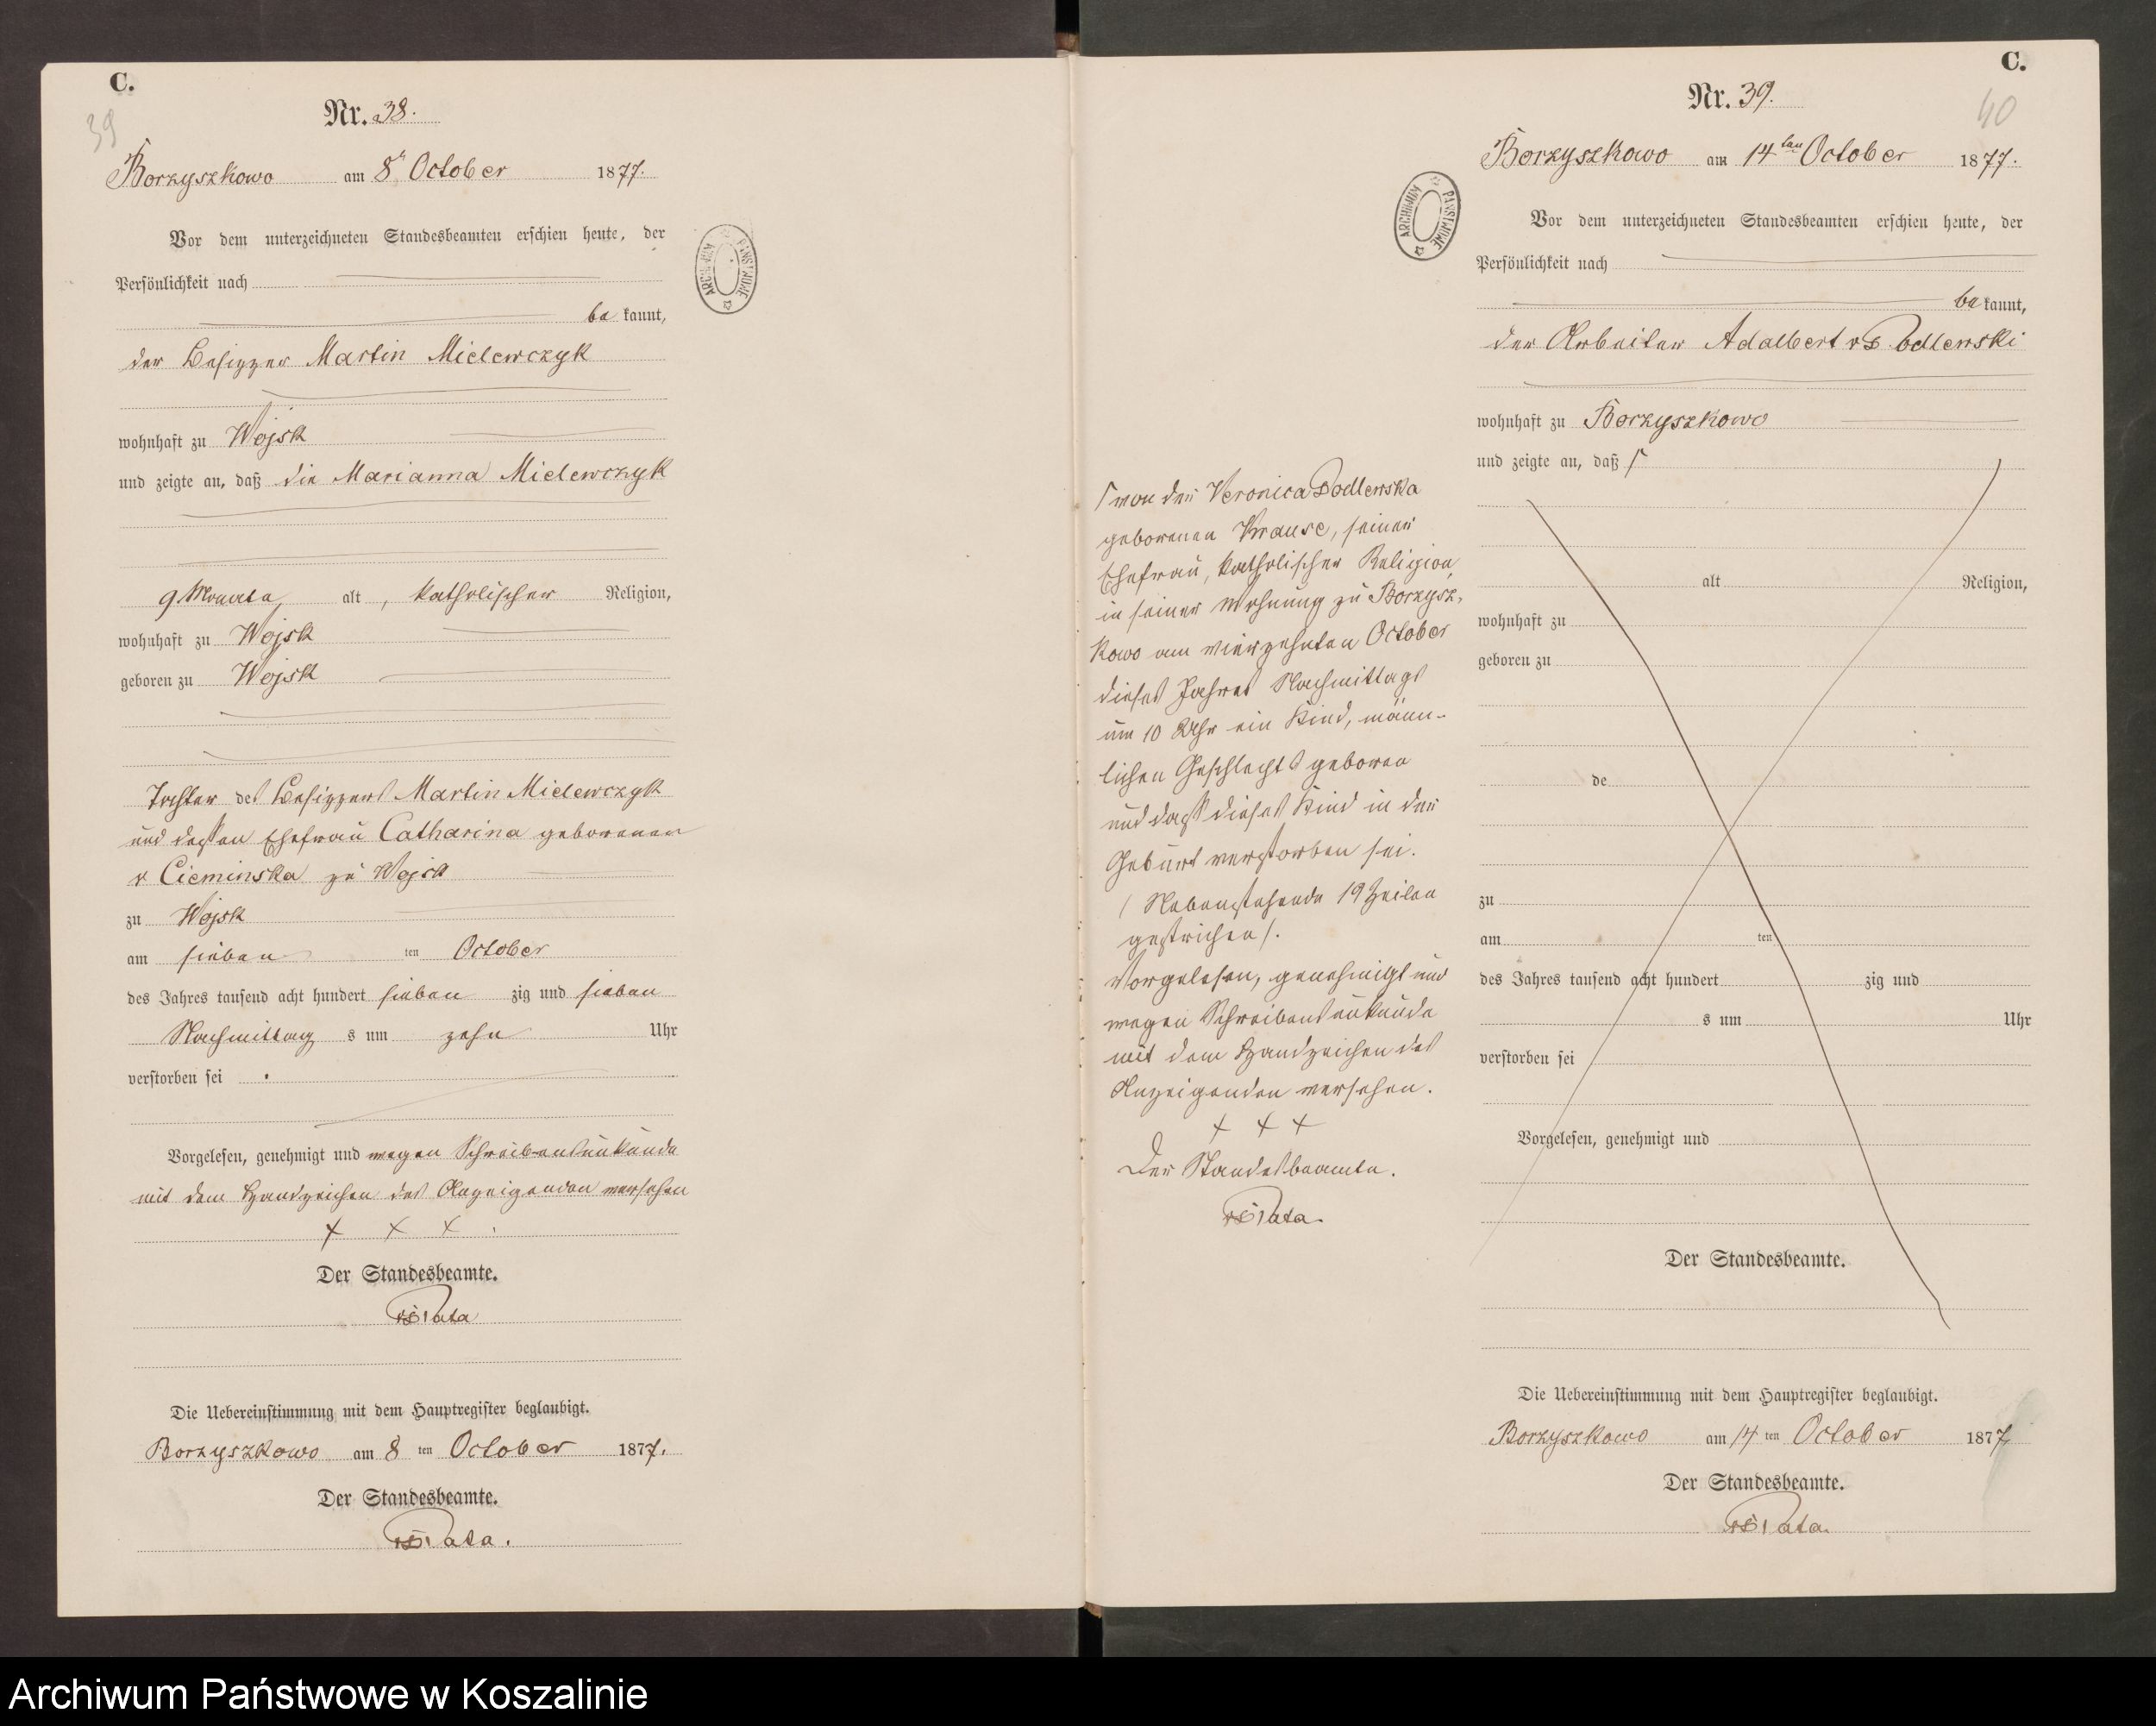 C.
39
Nr. 38.
Borzyszkowo am 8t October 1877.
Vor dem unterzeichneten Standesbeamten erschien heute, der
Persönlichkeit nach
bekannt,
der Besitzer Martin Mielewczyk
wohnhaft zu Wojsk
und zeigte an, daß die Marianna Mielewczyk
9 Monate alt, katholischer Religion,
wohnhaft zu Wojsk
geboren zu Wojsk
Tochter des Besitzers Martin Mielewczyk
und dessen Ehefrau Catharina geborenen
v Cieminska zu Wojsk
zu Wojsk
am sieben ten October
des Jahres tausend acht hundert sieben zig und sieben
Nachmittag s um zehn Uhr
verstorben sei .
Vorgelesen, genehmigt und wegen Schreibensunkunde
mit dem Handzeichen des Anzeigenden versehen
+ + +
Der Standesbeamte.
Die Uebereinstimmung mit dem Hauptregister beglaubigt.
Borzyszkowo am 8 ten October 1877.
Der Standesbeamte.
ARCHIWUM PAŃSTWOWE
C.
40
Nr. 39.
Borzyszkowo am 14ten October 1877.
Vor dem unterzeichneten Standesbeamten erschien heute, der
Persönlichkeit nach
bekannt,
der Arbeiter Adalbert Podlewski
wohnhaft zu Borzyszkowo
und zeigte an, daß
alt Religion,
wohnhaft zu
geboren zu
de
zu
am ten
des Jahres tausend acht hundert zig und
s um Uhr
verstorben sei
Vorgelesen, genehmigt und
Der Standesbeamte.
von der Veronica Podlewska
geborenen Krause, seiner
Ehefrau, katholischer Religion,
in seiner Wohnung zu Borzysz-
kowo am vierzehnten October
dieses Jahres Nachmittags
um 10 Uhr ein Kind, männ-
lichen Geschlechts geboren
und daß dieses Kind in der
Geburt verstorben sei.
/ Nebenstehende 19 Zeilen
gestrichen /.
Vorgelesen, genehmigt und
wegen Schreibensunkunde
mit dem Handzeichen des
Anzeigenden versehen.
+ + +
Der Standesbeamte.
Die Uebereinstimmung mit dem Hauptregister beglaubigt.
Borzyszkowo am 14 ten October 1877
Der Standesbeamte.
ARCHIWUM PAŃSTWOWE
Archiwum Państwowe w Koszalinie